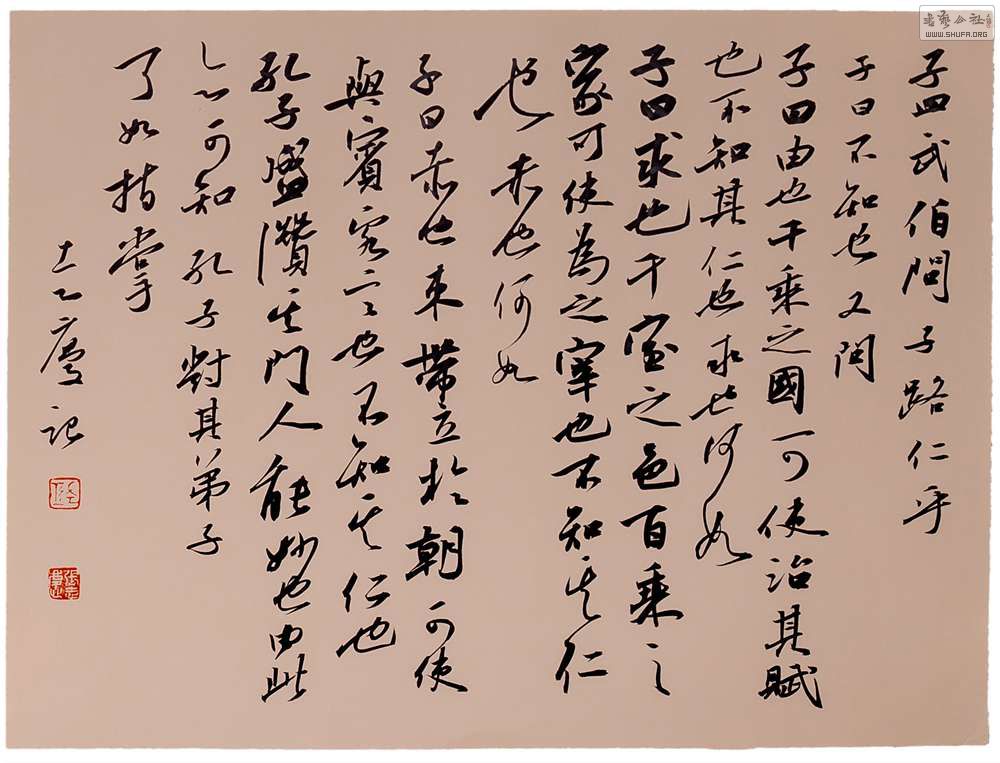 孟武伯問子路仁乎
子曰不知也又問
子曰由也千乘之國可使治其賦
也不知其仁也求也何如
子曰求也千室之邑百乘之
家可使為之宰也不知其仁
也赤也何如
子曰赤也束帶立於朝可使
與賓客言也不知其仁也
孔子盛讚其門人能妙也由此
可知孔子對其弟子
了如指掌
廬記
WWW.SHUFA.ORG